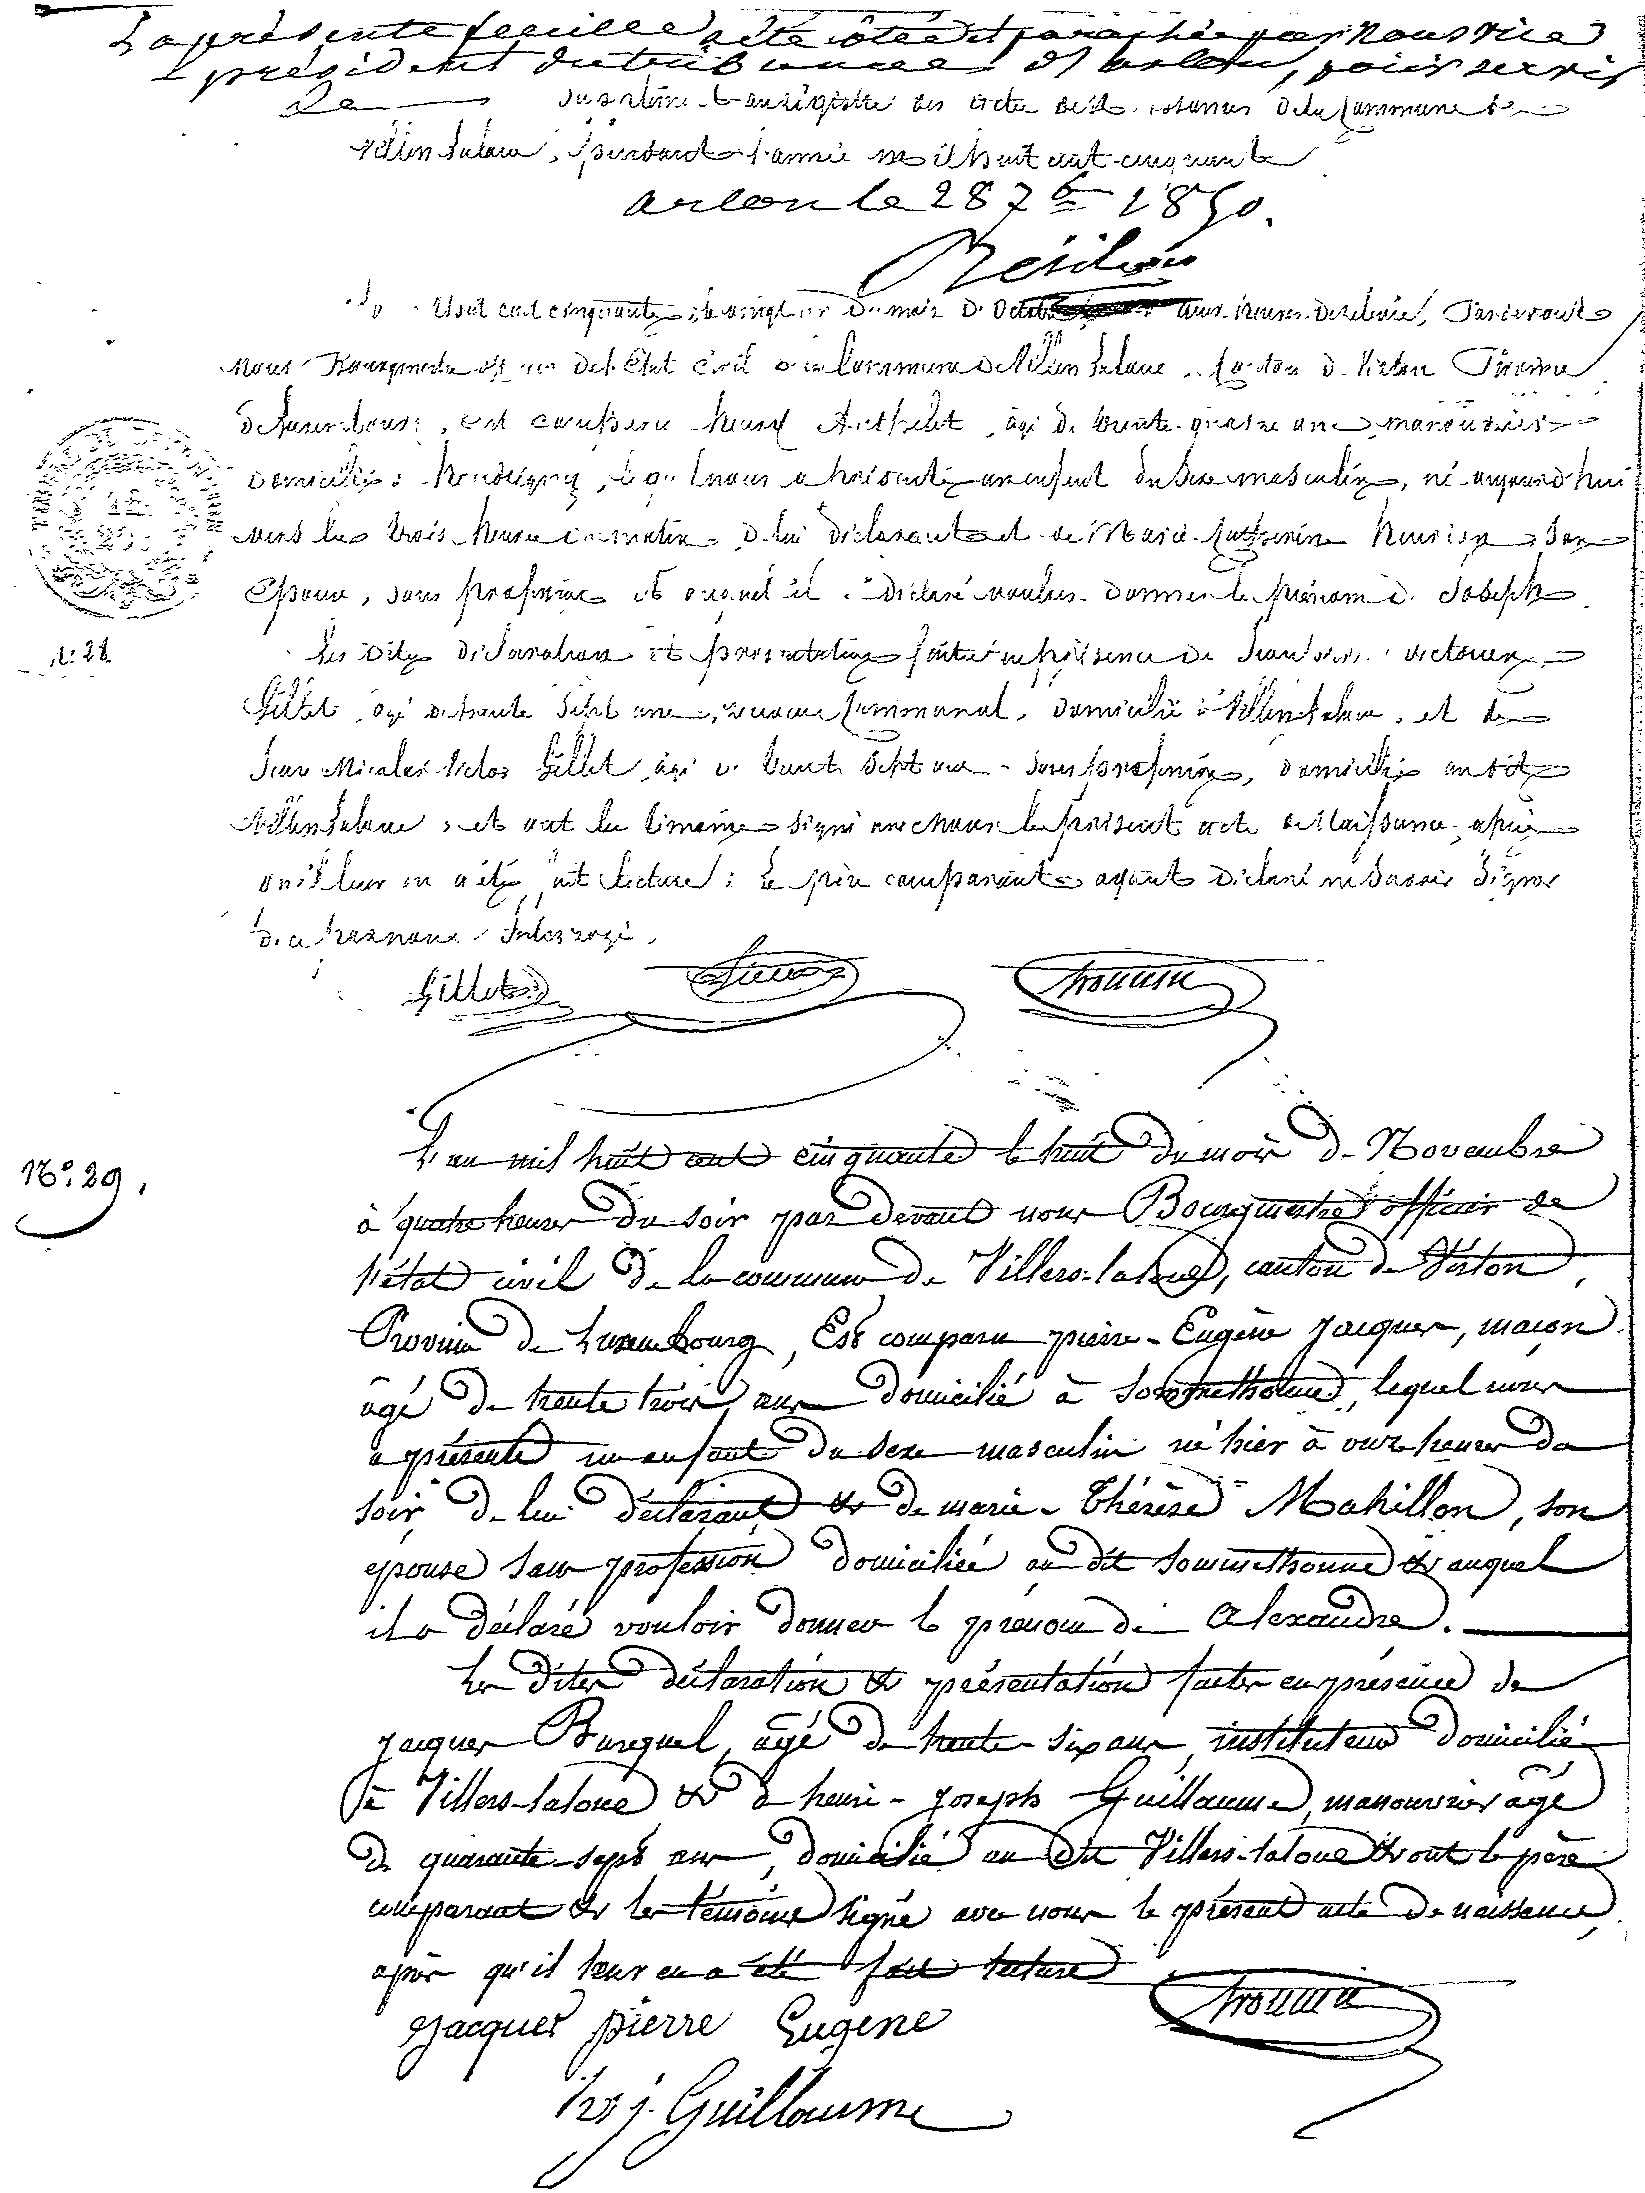 La présente feuille a été côtée et paraphée par nous vice
président du tribunal d'arlon, pour servir
de supplément au registre des actes de naissances de la Commune de
Villers Laloue, pendant l'année mil huit cent cinquante
arlon le 28 7bre 1850.
huit cent cinquante, le vingt du mois d'Octobre aux heures de relevée, Pardevant
Nous Bourgmestre officier de l'Etat Civil de la Commune de Villers Laloue, Canton de Virton Province
de Luxembourg, est comparu Henry Authelet, âgé de trente quatre ans, manouvrier
domicilié à Houdrigny, lequel nous a présenté un enfant du sexe masculin, né aujourd'hui
vers les trois heures du matin, de lui déclarant et de Marie Catherine Henrion, son
Epouse, sans profession et auquel il a déclaré vouloir donner le prénom de Joseph
Les dites déclaration et présentation faites en présence de Jean victor
Gillet, âgé de trente sept ans, receveur Communal, domicilié à Villers Laloue, et de
Jean Nicolas Victor Gillet, âgé de vent sept ans, sans profession, domicilié audit
Villers Laloue, et ont les témoins signé avec nous le présent acte de Naissance, après
qu'il leur en a été fait lecture; Le père comparant ayant déclaré ne savoir signer
de ce par nous Interrogé.
N° 28
Gillet
N° 29.
L'an mil huit cent cinquante le huit du mois de Novembre
à quatre heures du soir par devant nous Bourgmestre officier de
l'état civil de la commune de Villers-laloue, canton de Virton,
Province de Luxembourg, Est comparu pierre-Eugène Jacques, maçon
âgé de trente trois ans domicilié à Sommethonne, lequel nous
a présenté un enfant du sexe masculin né hier à onze heures du
soir, de lui déclarant & de marie-Thérèse Mahillon, son
épouse sans profession domiciliée au dit Sommethonne & auquel
il a déclaré vouloir donner le prénom de Alexandre.
Les dites déclaration & présentation faites en présence de
Jacques Burquel, âgé de trente-six ans, instituteur domicilié
à Villers-laloue & de henri-Joseph Guillaume, manouvrier âgé
de quarante-sept ans, domicilié au dit Villers-laloue & ont le père
comparant & les témoins signé avec nous le présent acte de naissance,
après qu'il leur en a été fait lecture
Jacques pierre Eugene
hri j. Guillaume